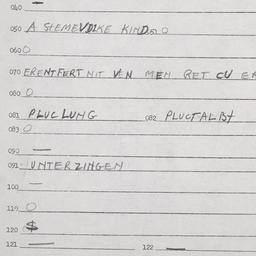 040 —
050 A STEMEVOLKE KIND
060 O
070 ERENTFERT MIT VEN MEN RET CU ER
080 O
081 PLUCLUNG 082 PLUCTALBT
083 O
090 —
091 UNTERZINGEN
100 —
110 O
120 $
121 — 122 —